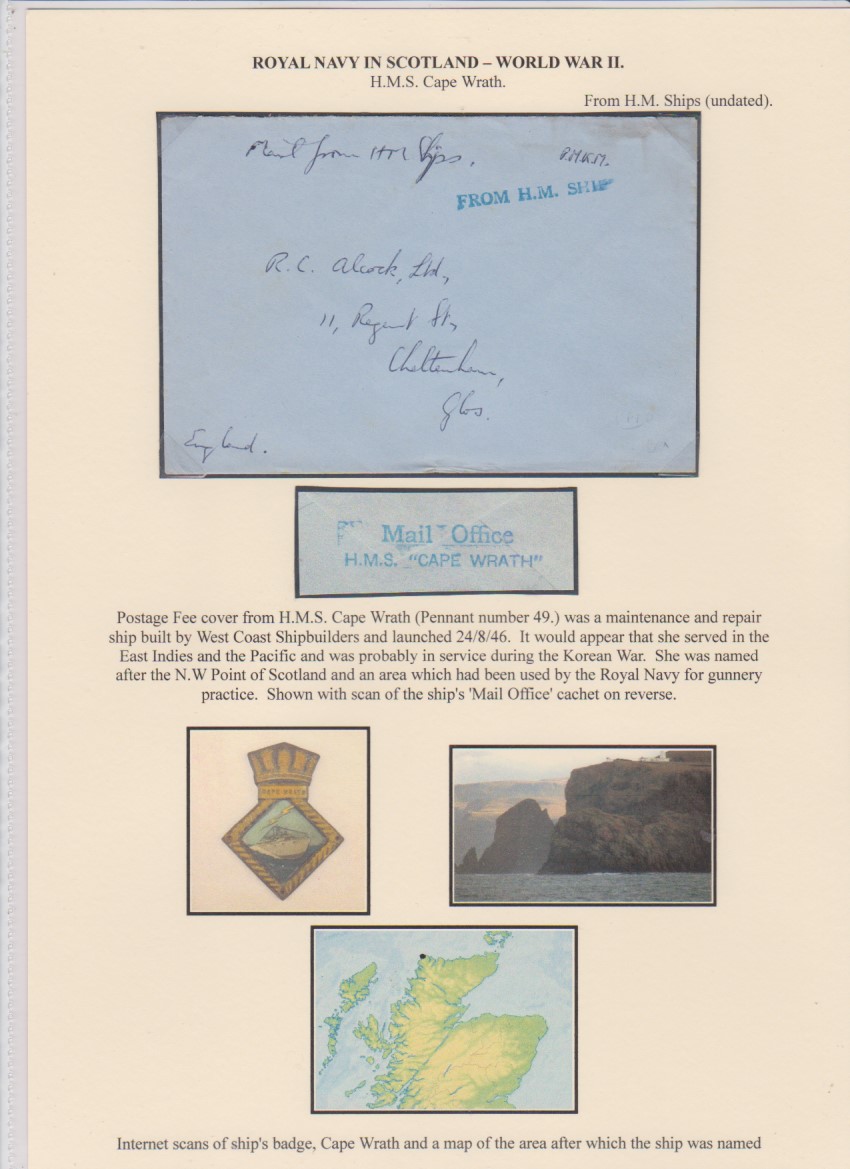 ROYAL NAVY IN SCOTLAND – WORLD WAR II.
H.M.S. Cape Wrath.
From H.M. Ships (undated).
Mail from HM Ships.
P.M.K.M.
FROM H.M. SHIP
R.C. Alcock, Ltd,
11, Regent St,
Cheltenham,
Glos.
England.
Mail Office
H.M.S. "CAPE WRATH"
Postage Fee cover from H.M.S. Cape Wrath (Pennant number 49.) was a maintenance and repair
ship built by West Coast Shipbuilders and launched 24/8/46. It would appear that she served in the
East Indies and the Pacific and was probably in service during the Korean War. She was named
after the N.W Point of Scotland and an area which had been used by the Royal Navy for gunnery
practice. Shown with scan of the ship's 'Mail Office' cachet on reverse.
CAPE WRATH
Internet scans of ship's badge, Cape Wrath and a map of the area after which the ship was named